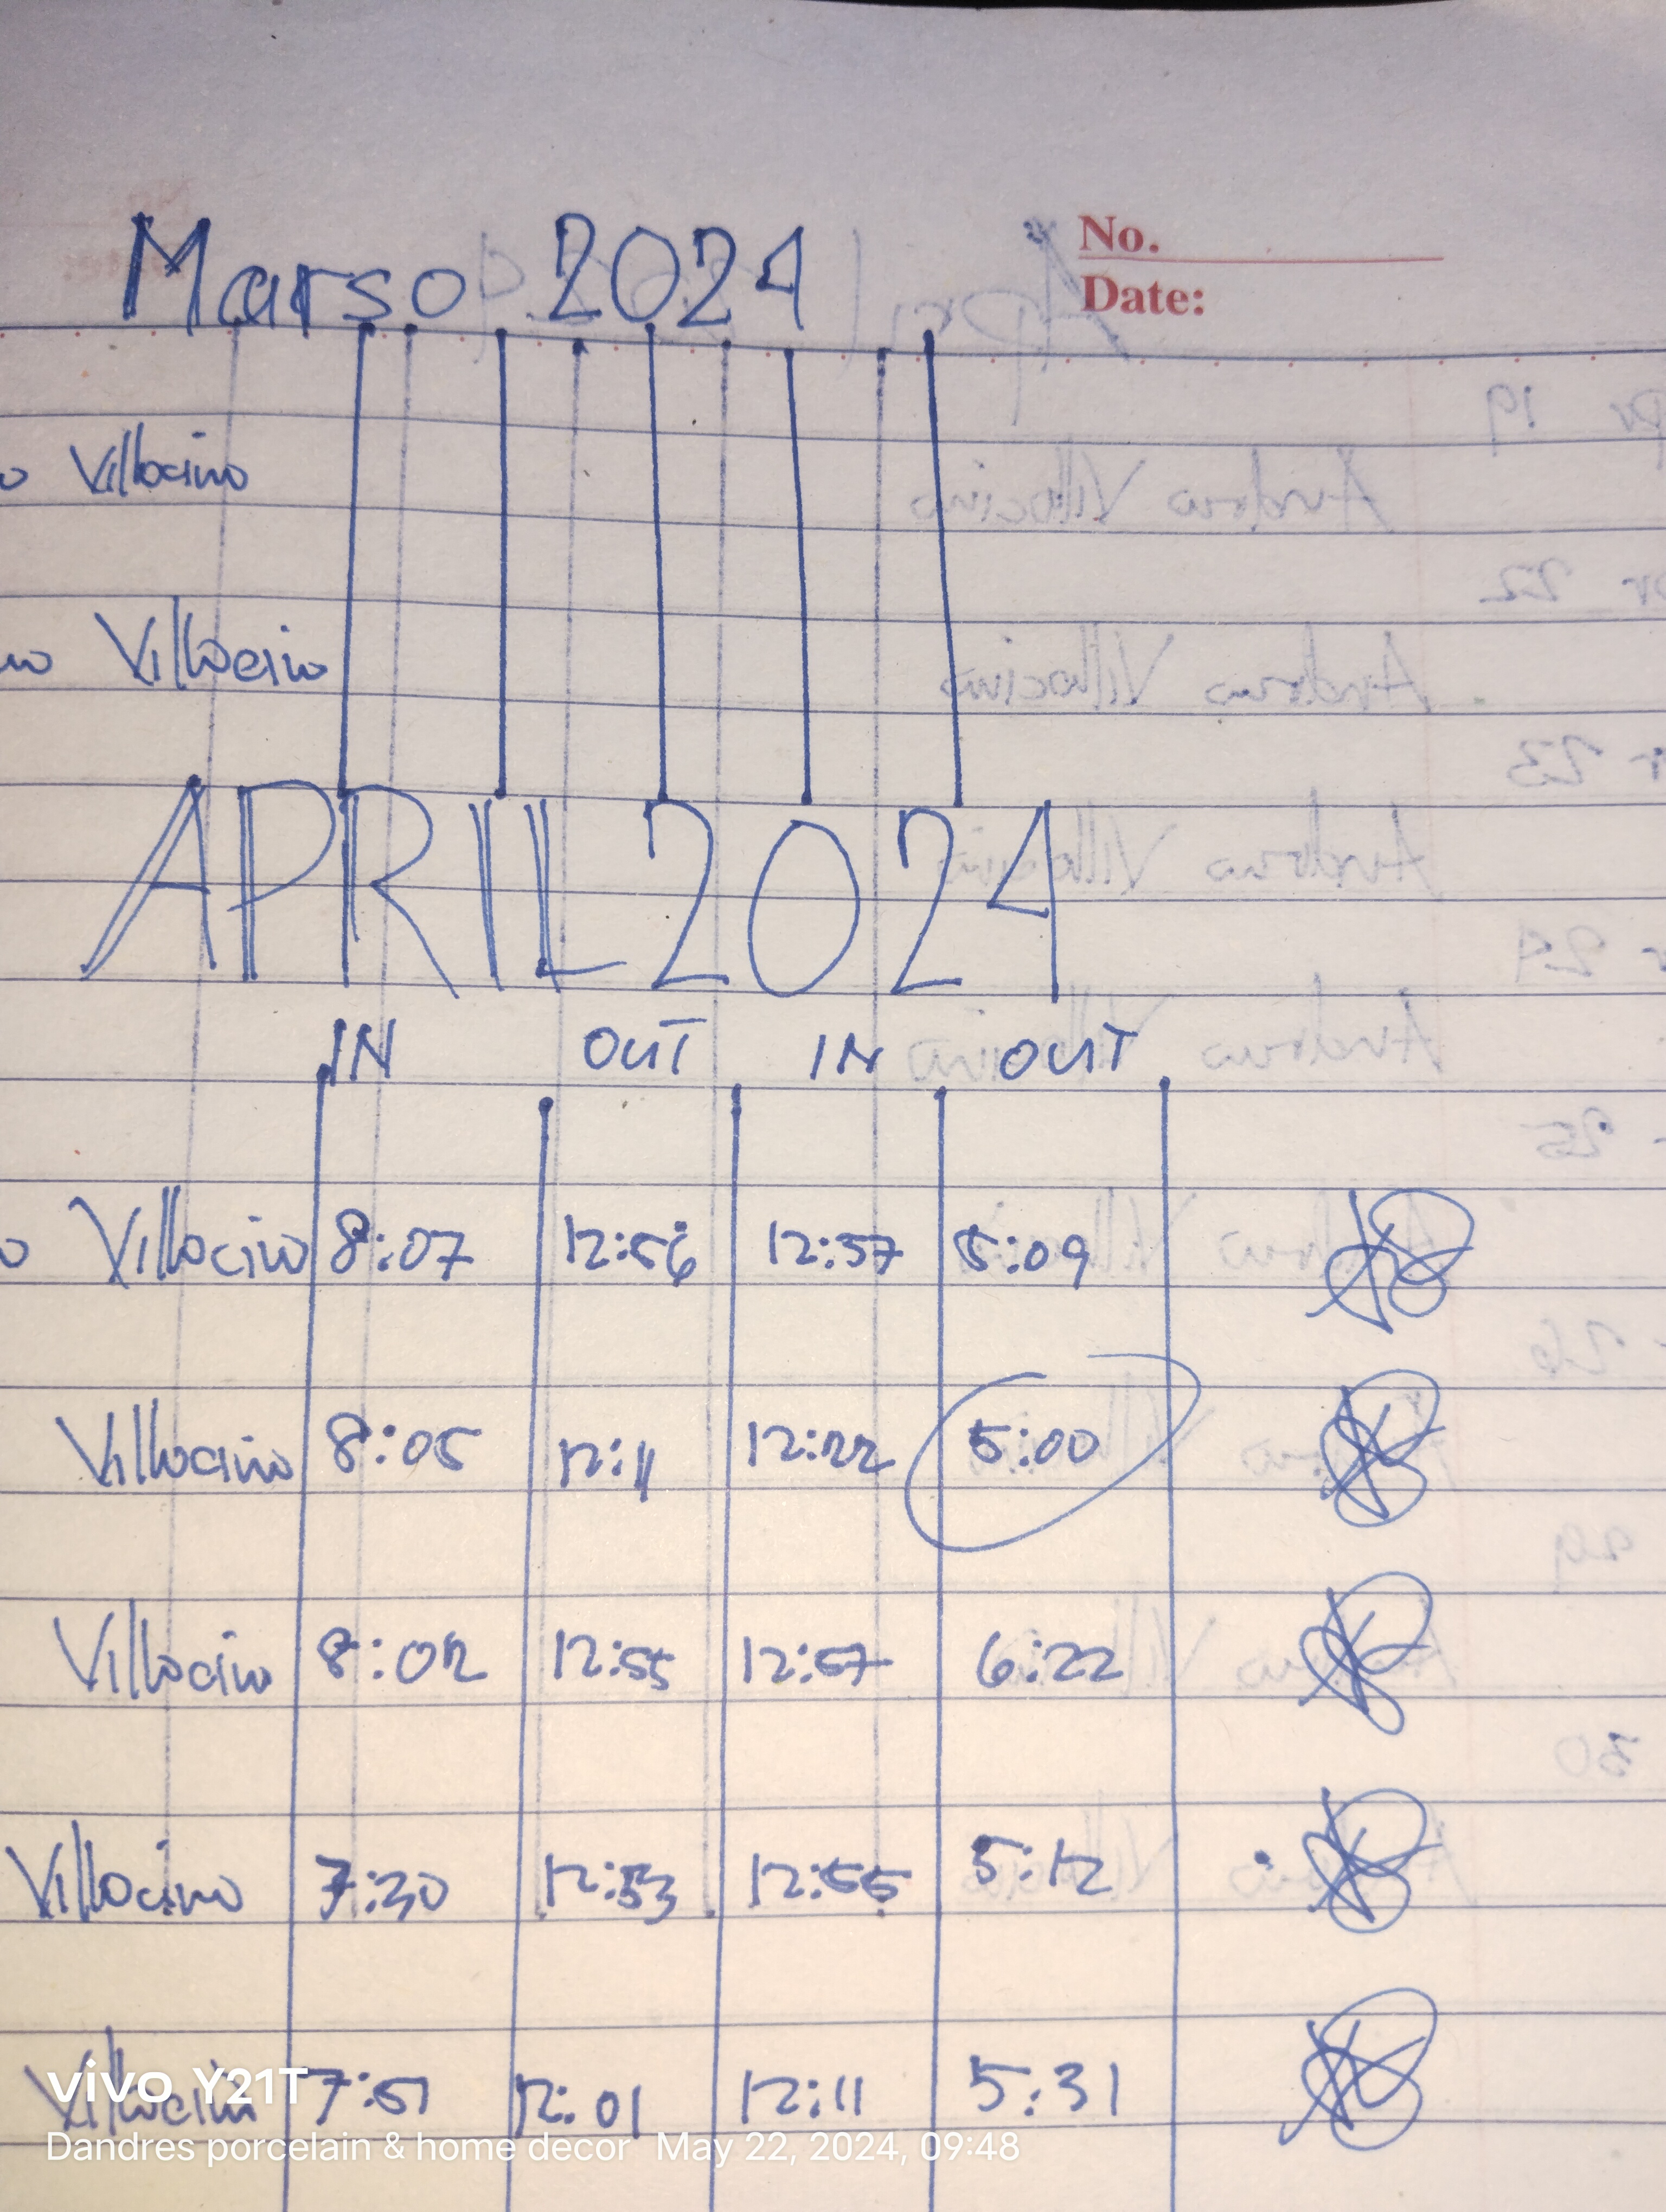 Marso 2024
No.
Date:
Villocino
Villocino
APRIL 2024
IN OUT IN OUT
Villocino 8:07 12:56 12:57 5:09
Villocino 8:05 12:11 12:22 5:00
Villocino 8:02 12:55 12:57 6:22
Villocino 7:30 12:53 12:55 5:12
Villocino 7:51 12:01 12:11 5:31
vivo Y21T
Dandres porcelain & home decor May 22, 2024, 09:48